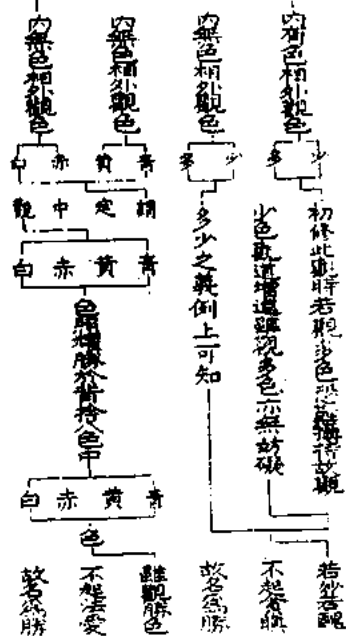 內有色相外觀色
少
多
初修此觀時若觀多色恐難攝持故觀
少色觀道增進雖觀多色亦無妨礙
若好若醜
不起貪瞋
故名為勝
內無色相外觀色
少
多
多少之義例上可知
內無色相外觀色
內無色相外觀色
青
黃
赤
白
調
定
中
觀
青
黃
赤
白
色耀勝於背捨八色中
青
黃
赤
白
色
雖觀勝色
不起法愛
故名為勝